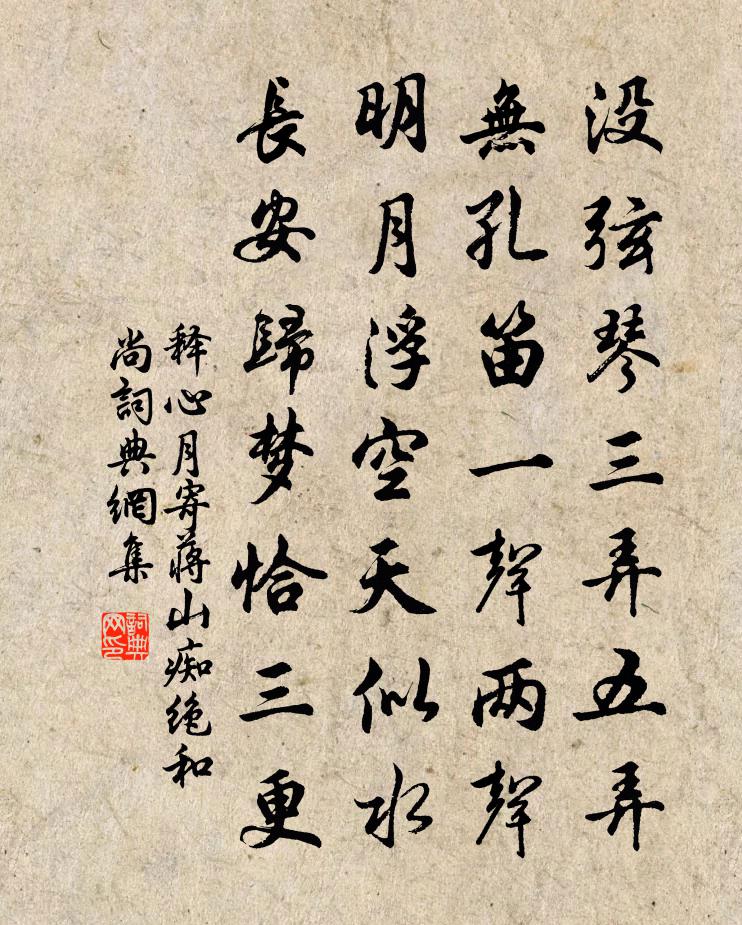 没弦琴三弄五弄
無孔笛一聲两聲
明月浮空天似水
長安歸梦恰三更
释心月寄蔣山痴绝和
尚詞典網集
詞典
网印